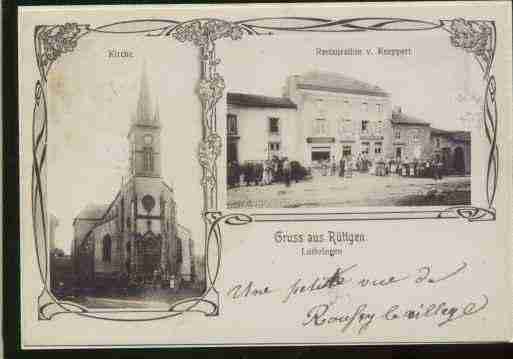 Kirche
Restauration v. Kneppert
Gruss aus Rüttgen.
Lothringen
Une petite vue de
Roussy le village